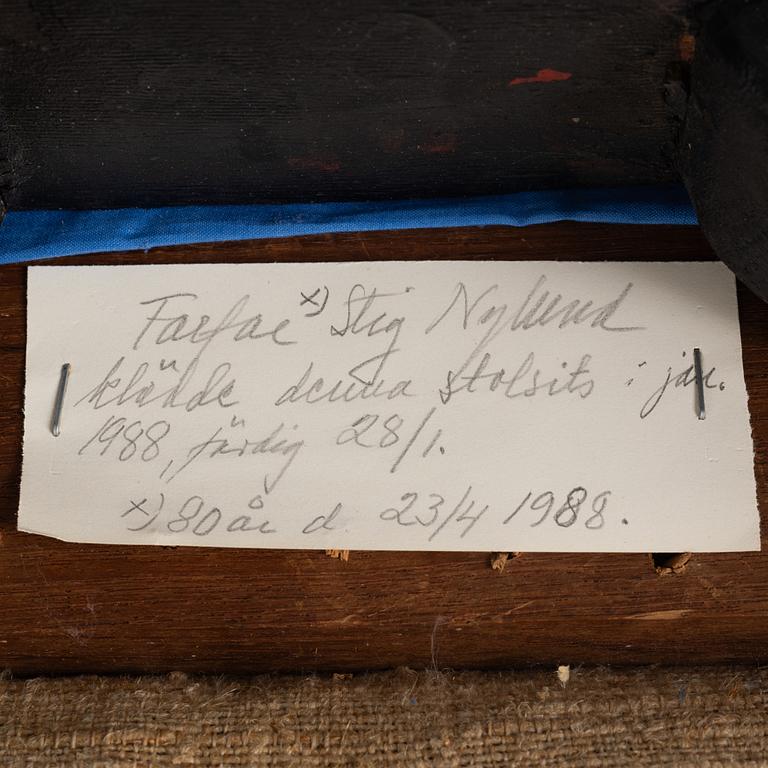 Farfar x) Stig Nylund
klädde denna stolsits i jan.
1988, färdig 28/1.
x) 80 år d. 23/4 1988.